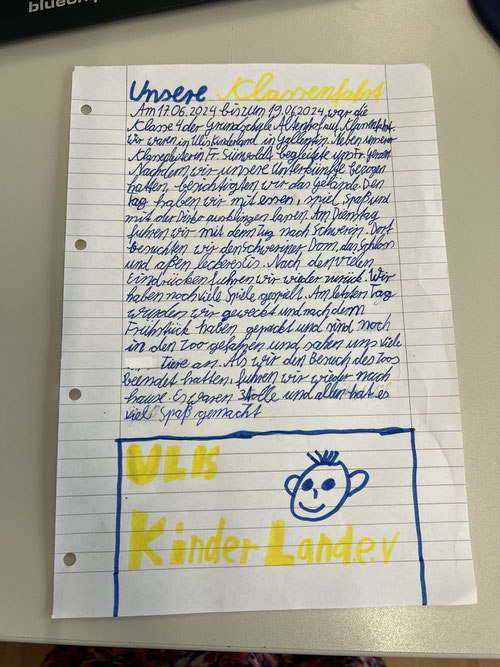 Unsere Klassenfahrt
Am 17.06.2024 bis zum 19.06.2024 war die
Klasse 4 der Grundschule Altenhof auf Klassenfahrt.
Wir waren in Ulis Kinderland in Gallentin. Neben unserer
Klassenleiterin, Fr. begleitete uns Fr.
Nachdem wir unsere Unterkünfte bezogen
hatten, besichtigten wir das Gelände. Den
Tag haben wir mit essen, spiel, Spaß und
mit der Disko ausklingen lassen. Am Dienstag
fuhren wir mit dem Zug nach Schwerin. Dort
besuchten wir den Schweriner Dom, das Schloss
und aßen leckeres Eis. Nach den vielen
Eindrücken fuhren wir wieder zurück. Wir
haben noch viele Spiele gespielt. Am letzten Tag
wurden wir geweckt und nach dem
Frühstück haben gepackt und sind noch
in den Zoo gefahren und sahen uns viele
Tiere an. Als wir den Besuch des Zoos
beendet hatten, fuhren wir wieder nach
hause. Es waren 3 tolle und allen hat es
viel Spaß gemacht
ULIS
Kinder Land e.v